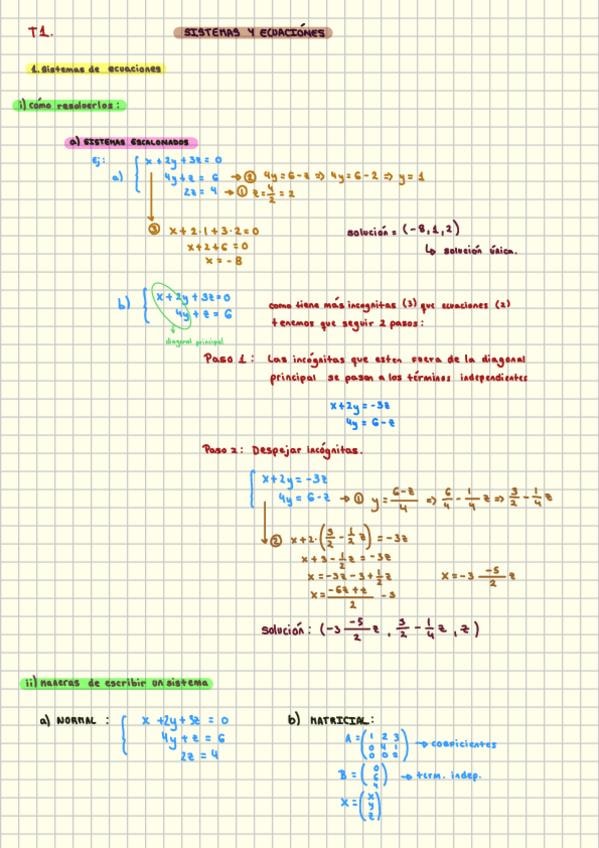 T1. SISTEMAS Y ECUACIÓNES
1. Sistemas de ecuaciones
i) cómo resolverlos:
a) SISTEMAS ESCALONADOS
Ej:
a) { x + 2y + 3z = 0
4y + z = 6 → ② 4y = 6 - z ⇒ 4y = 6 - 2 ⇒ y = 1
2z = 4 → ① z = 4/2 = 2
③ x + 2·1 + 3·2 = 0
x + 2 + 6 = 0
x = -8
solución = (-8, 1, 2)
↳ solución única.
b) { x + 2y + 3z = 0
4y + z = 6
diagonal principal
como tiene más incognitas (3) que ecuaciones (2)
tenemos que seguir 2 pasos:
Paso 1: Las incógnitas que esten fuera de la diagonal
principal se pasan a los términos independientes
x + 2y = -3z
4y = 6 - z
Paso 2: Despejar incógnitas.
{ x + 2y = -3z
4y = 6 - z → ① y = 6-z/4 ⇒ 6/4 - 1/4 z ⇒ 3/2 - 1/4 z
② x + 2·(3/2 - 1/2 z) = -3z
x + 3 - 1/2 z = -3z
x = -3z - 3 + 1/2 z
x = -6z + z/2 - 3
x = -3 -5/2 z
solución: (-3 -5/2 z, 3/2 - 1/4 z, z)
ii) maneras de escribir un sistema
a) NORMAL: { x + 2y + 3z = 0
4y + z = 6
2z = 4
b) MATRICIAL:
A = (1 2 3
0 4 1
0 0 2) → coeficientes
B = (0
6
4) → term. indep.
X = (x
y
z)